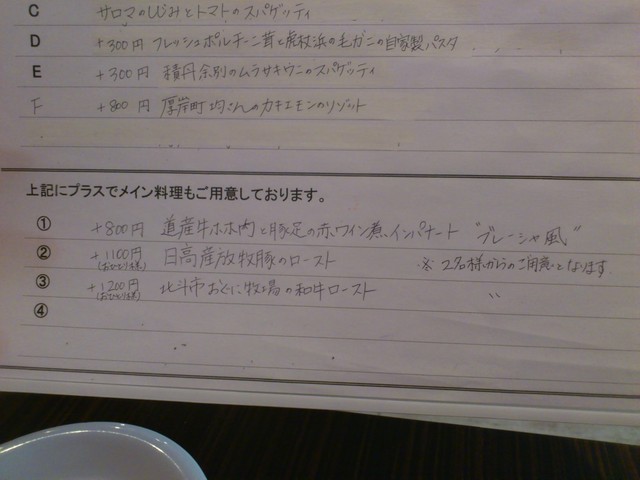 C サロマのしじみとトマトのスパゲッティ
D +300円 フレッシュポルチーニ茸と虎杖浜の毛ガニの自家製パスタ
E +300円 積丹余別のムラサキウニのスパゲッティ
F +800円 厚岸町 さんのカキエモンのリゾット
上記にプラスでメイン料理もご用意しております。
① +800円 道産牛ホホ肉と豚足の赤ワイン煮インパナート "ブレーシャ風"
② +1100円 日高産放牧豚のロースト ※2名様からのご用意となります
(おひとり様)
③ +1200円 北斗市おぐに牧場の和牛ロースト 〃
(おひとり様)
④